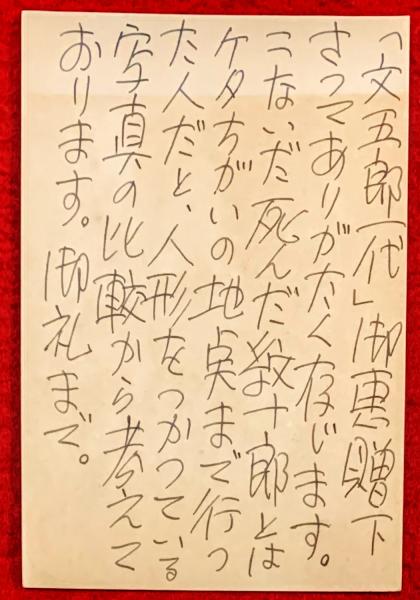 「文五郎一代」御恵贈下
さってありがたく存じます。
こないだ死んだ紋十郎とは
ケタちがいの地点まで行っ
た人だと、人形をつかっている
写真の比較から考えて
おります。御礼まで。